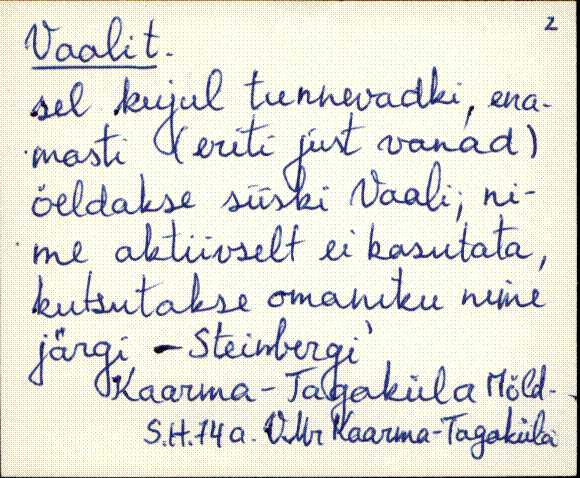 2
Vaalit.
sel kujul tunnevadki, ena-
masti (eriti just vanad)
öeldakse siiski Vaali; ni-
me aktiivselt ei kasutata,
kutsutakse omaniku nime
järgi - Steinbergi'
Kaarma-Tagaküla Mõld-
S.H. 74 a. V.Mr Kaarma-Tagaküla